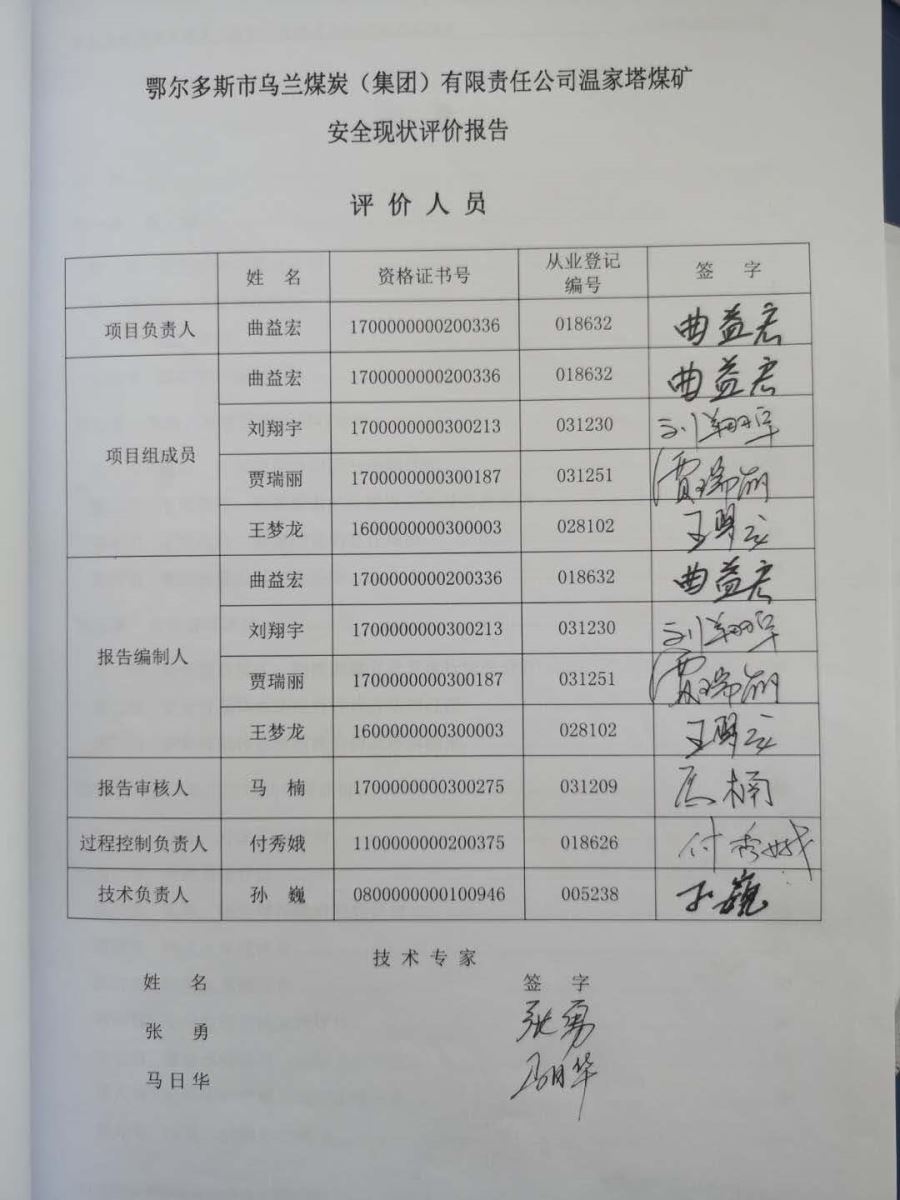 鄂尔多斯市乌兰煤炭（集团）有限责任公司温家塔煤矿
安全现状评价报告
评价人员
姓 名 资格证书号 从业登记编号 签 字
项目负责人 曲益宏 1700000000200336 018632 曲益宏
项目组成员 曲益宏 1700000000200336 018632 曲益宏
刘翔宇 1700000000300213 031230 刘翔宇
贾瑞丽 1700000000300187 031251 贾瑞丽
王梦龙 1600000000300003 028102 王梦龙
报告编制人 曲益宏 1700000000200336 018632 曲益宏
刘翔宇 1700000000300213 031230 刘翔宇
贾瑞丽 1700000000300187 031251 贾瑞丽
王梦龙 1600000000300003 028102 王梦龙
报告审核人 马 楠 1700000000300275 031209 马楠
过程控制负责人 付秀娥 1100000000200375 018626 付秀娥
技术负责人 孙 巍 0800000000100946 005238 孙巍
技术专家
姓 名 签 字
张 勇 张勇
马日华 马日华